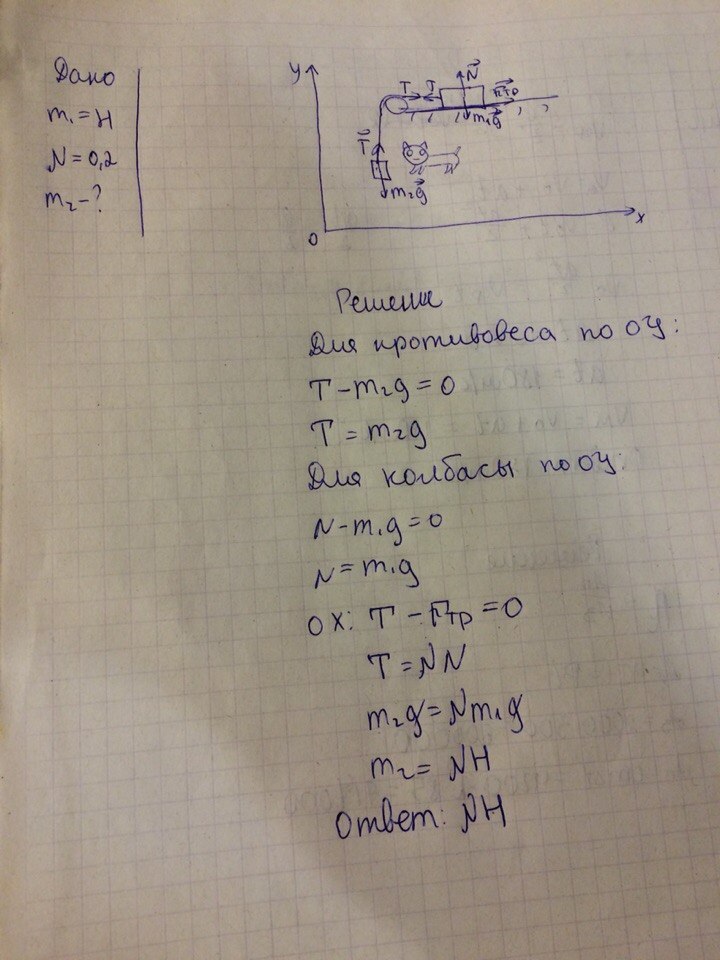 Дано
m₁ = H
N = 0,2
m₂ - ?
y
T
T
N
Fтр
m₁g
T
m₂g
0
x
Решение
Для противовеса по OY:
T - m₂g = 0
T = m₂g
Для колбасы по OY:
N - m₁g = 0
N = m₁g
OX: T - Fтр = 0
T = NN
m₂g = Nm₁g
m₂ = NH
Ответ: NH